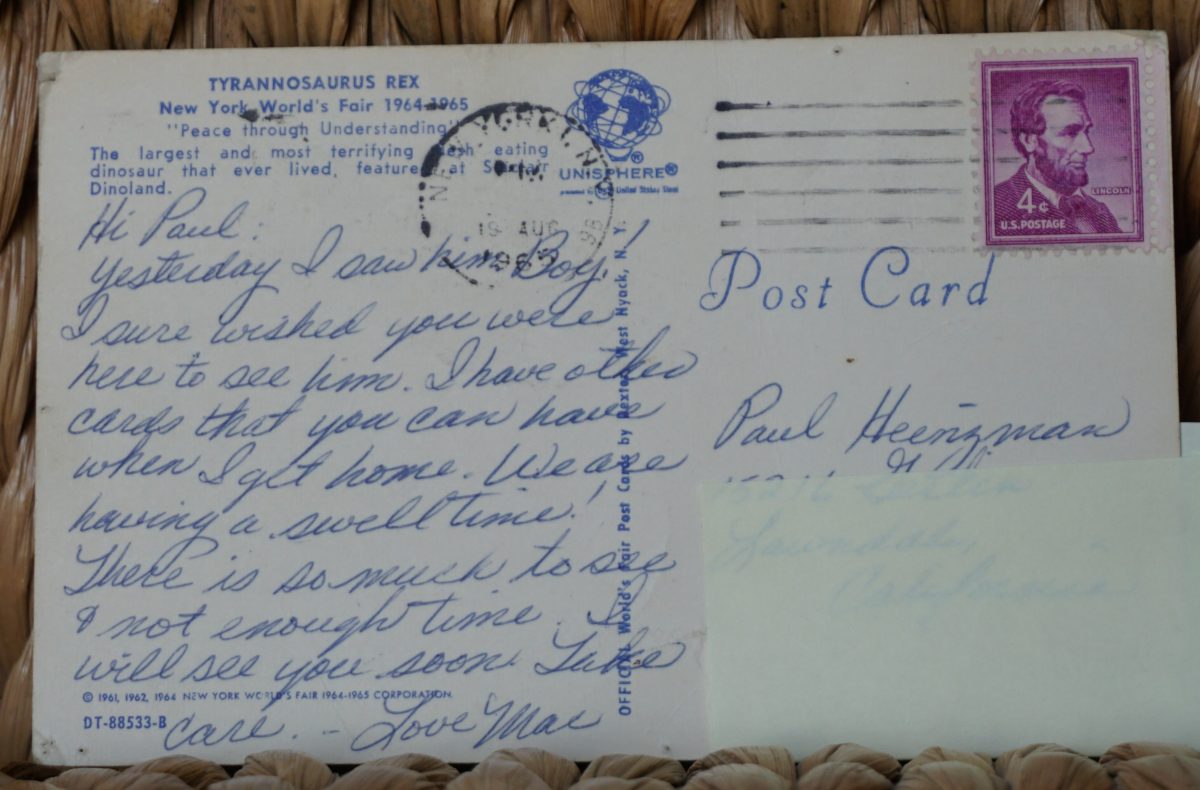 TYRANNOSAURUS REX
New York World's Fair 1964-1965
"Peace through Understanding"
The largest and most terrifying eating
dinosaur that ever lived, at
Dinoland.
UNISPHERE®
United States Steel
NEW YORK 1, N.Y.
19 AUG
4¢
U.S. POSTAGE
LINCOLN
Post Card
Hi Paul:
Yesterday I saw him. Boy!
I sure wished you were
here to see him. I have other
cards that you can have
when I get home. We are
having a swell time!
There is so much to see
& not enough time. I
will see you soon. Take
care. - Love Mae
© 1961, 1962, 1964 NEW YORK WORLD'S FAIR 1964-1965 CORPORATION.
DT-88533-B
OFFICIAL World's Fair Post Cards by Dexter, West Nyack, N. Y.
Paul Heinzman